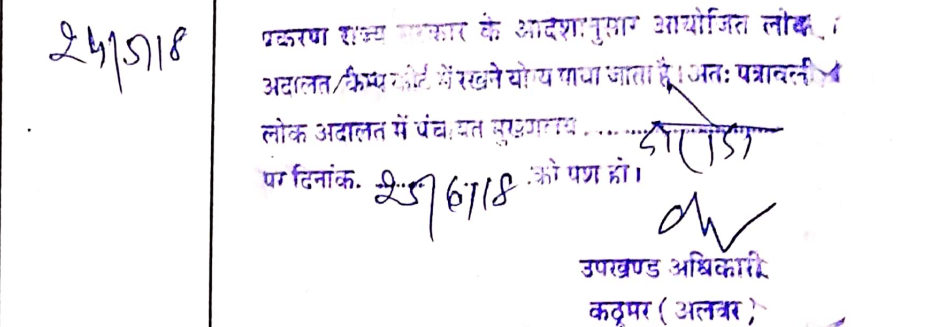 24/5/18
प्रकरण राज्य सरकार के आदेशानुसार आयोजित लोक
अदालत/कैम्प कोर्ट में रखने योग्य पाया जाता है। अतः पत्रावली
लोक अदालत में पंचायत मुख्यालय ........
पर दिनांक. 25/6/18 .को पेश हो।
उपखण्ड अधिकारी
कठूमर (अलवर)